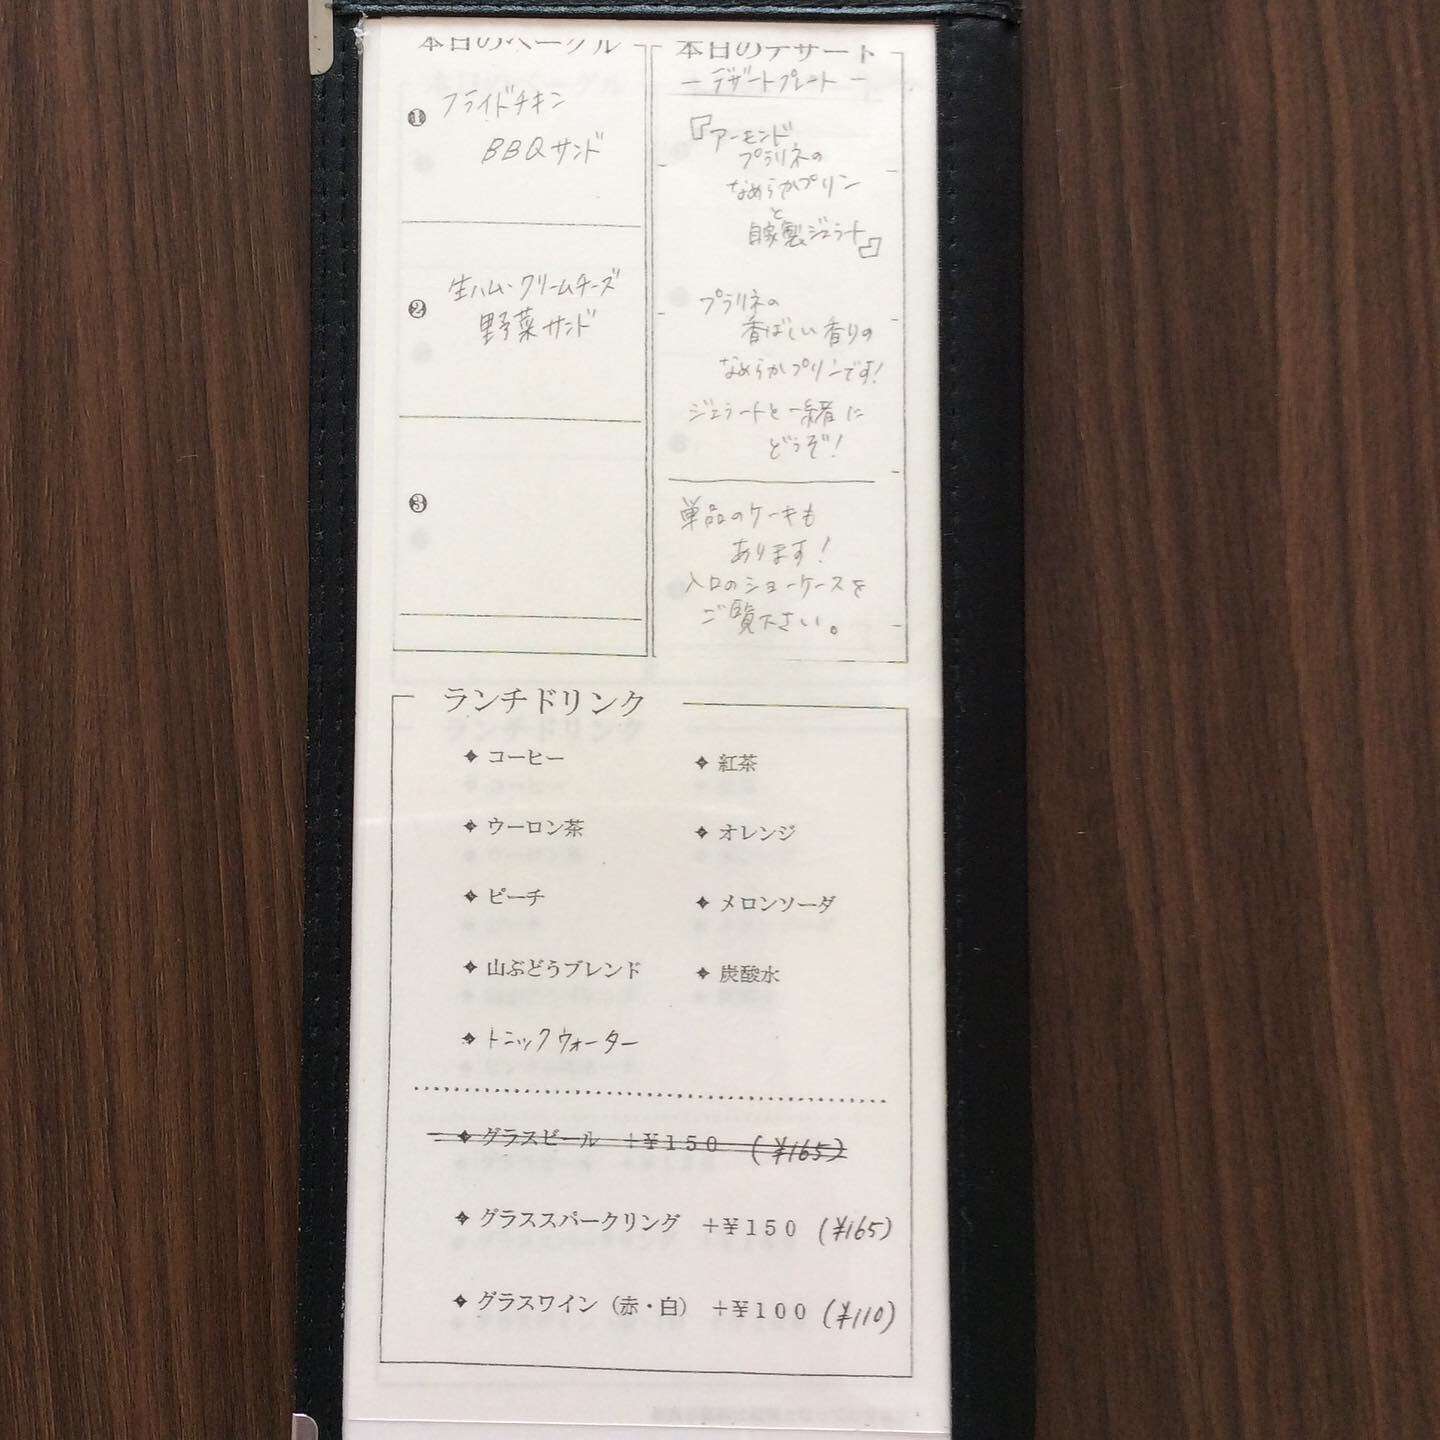 本日のベーグル
❶ フライドチキン
BBQサンド
❷ 生ハム・クリームチーズ
野菜サンド
❸
本日のデザート
ー デザートプレート ー
『アーモンド
プラリネの
なめらかプリン
と
自家製ジェラート』
プラリネの
香ばしい香りの
なめらかプリンです！
ジェラートと一緒に
どうぞ！
単品のケーキも
あります！
入口のショーケースを
ご覧下さい。
ランチドリンク
コーヒー
紅茶
ウーロン茶
オレンジ
ピーチ
メロンソーダ
山ぶどうブレンド
炭酸水
トニックウォーター
グラスビール +¥150 (¥165)
グラススパークリング +¥150 (¥165)
グラスワイン（赤・白） +¥100 (¥110)